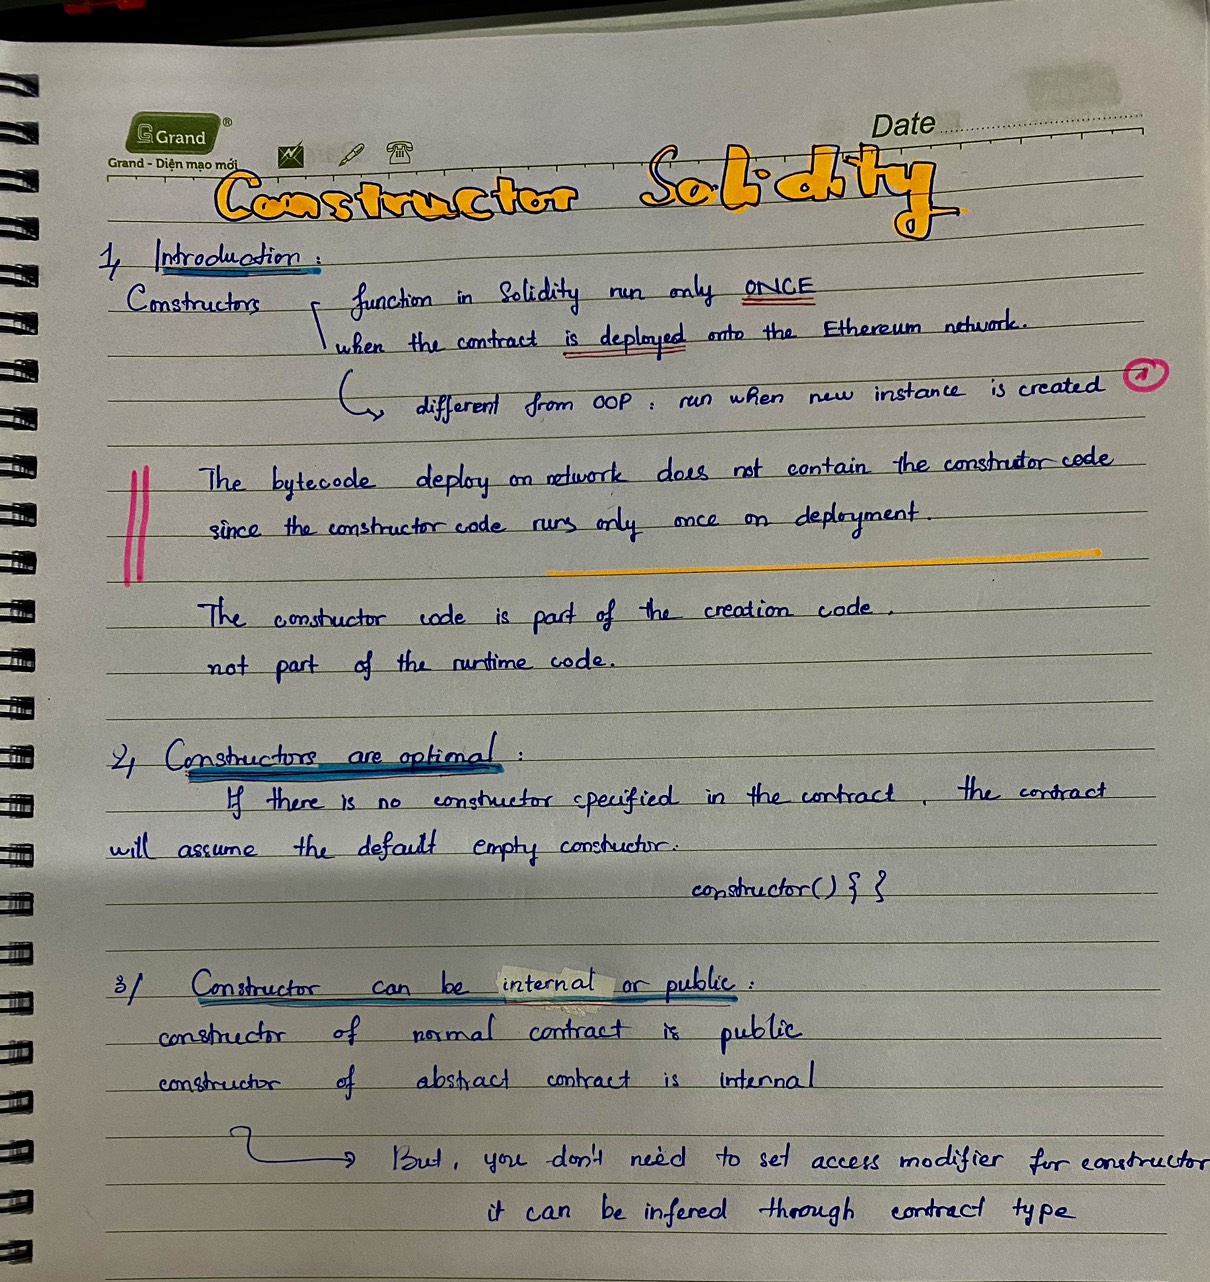 Grand®
Grand - Diện mạo mới
Date
Constructor Solidity
1, Introduction:
Constructors function in Solidity run only ONCE
when the contract is deployed onto the Ethereum network.
different from OOP: run when new instance is created
The bytecode deploy on network does not contain the constructor code
since the constructor code runs only once on deployment.
The constructor code is part of the creation code.
not part of the runtime code.
2, Constructors are optimal:
If there is no constructor specified in the contract, the contract
will assume the default empty constructor.
constructor() { }
3/ Constructor can be internal or public:
constructor of normal contract is public
constructor of abstract contract is internal
But, you don't need to set access modifier for constructor
it can be infered through contract type